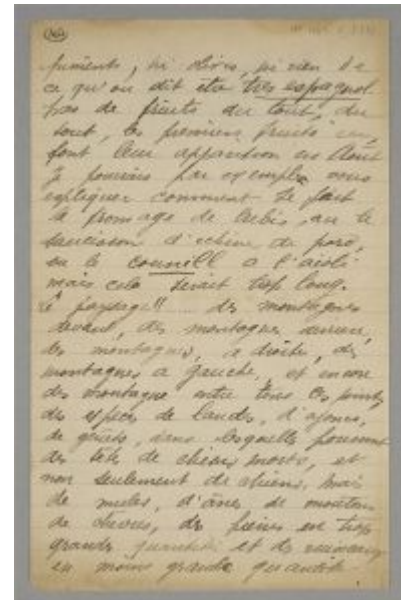 piments, ni olives, ni rien de
ce qu'on dit être très espagnol.
pas de fruits du tout, du
tout, les premiers fruits
font leur apparition en Août
Je pourrais par exemple vous
expliquer comment se fait
le fromage de brebis, ou le
saucisson d'echine de porc,
ou le counill a l'aioli
mais cela serait trop long.
le paysage!! des montagnes
devant, des montagnes derriere,
des montagnes, a droite, des
montagnes a gauche, et encore
des montagne entre tous ces points,
des espèces de landes, d'ajoncs,
de genêts, dans lesquelles poussent
des têtes de chiens morts, et
non seulement de chiens, mais
de mules, d'ânes de moutons
de chèvres, des pierres en trop
grande quantité et des
en moins grande quantité